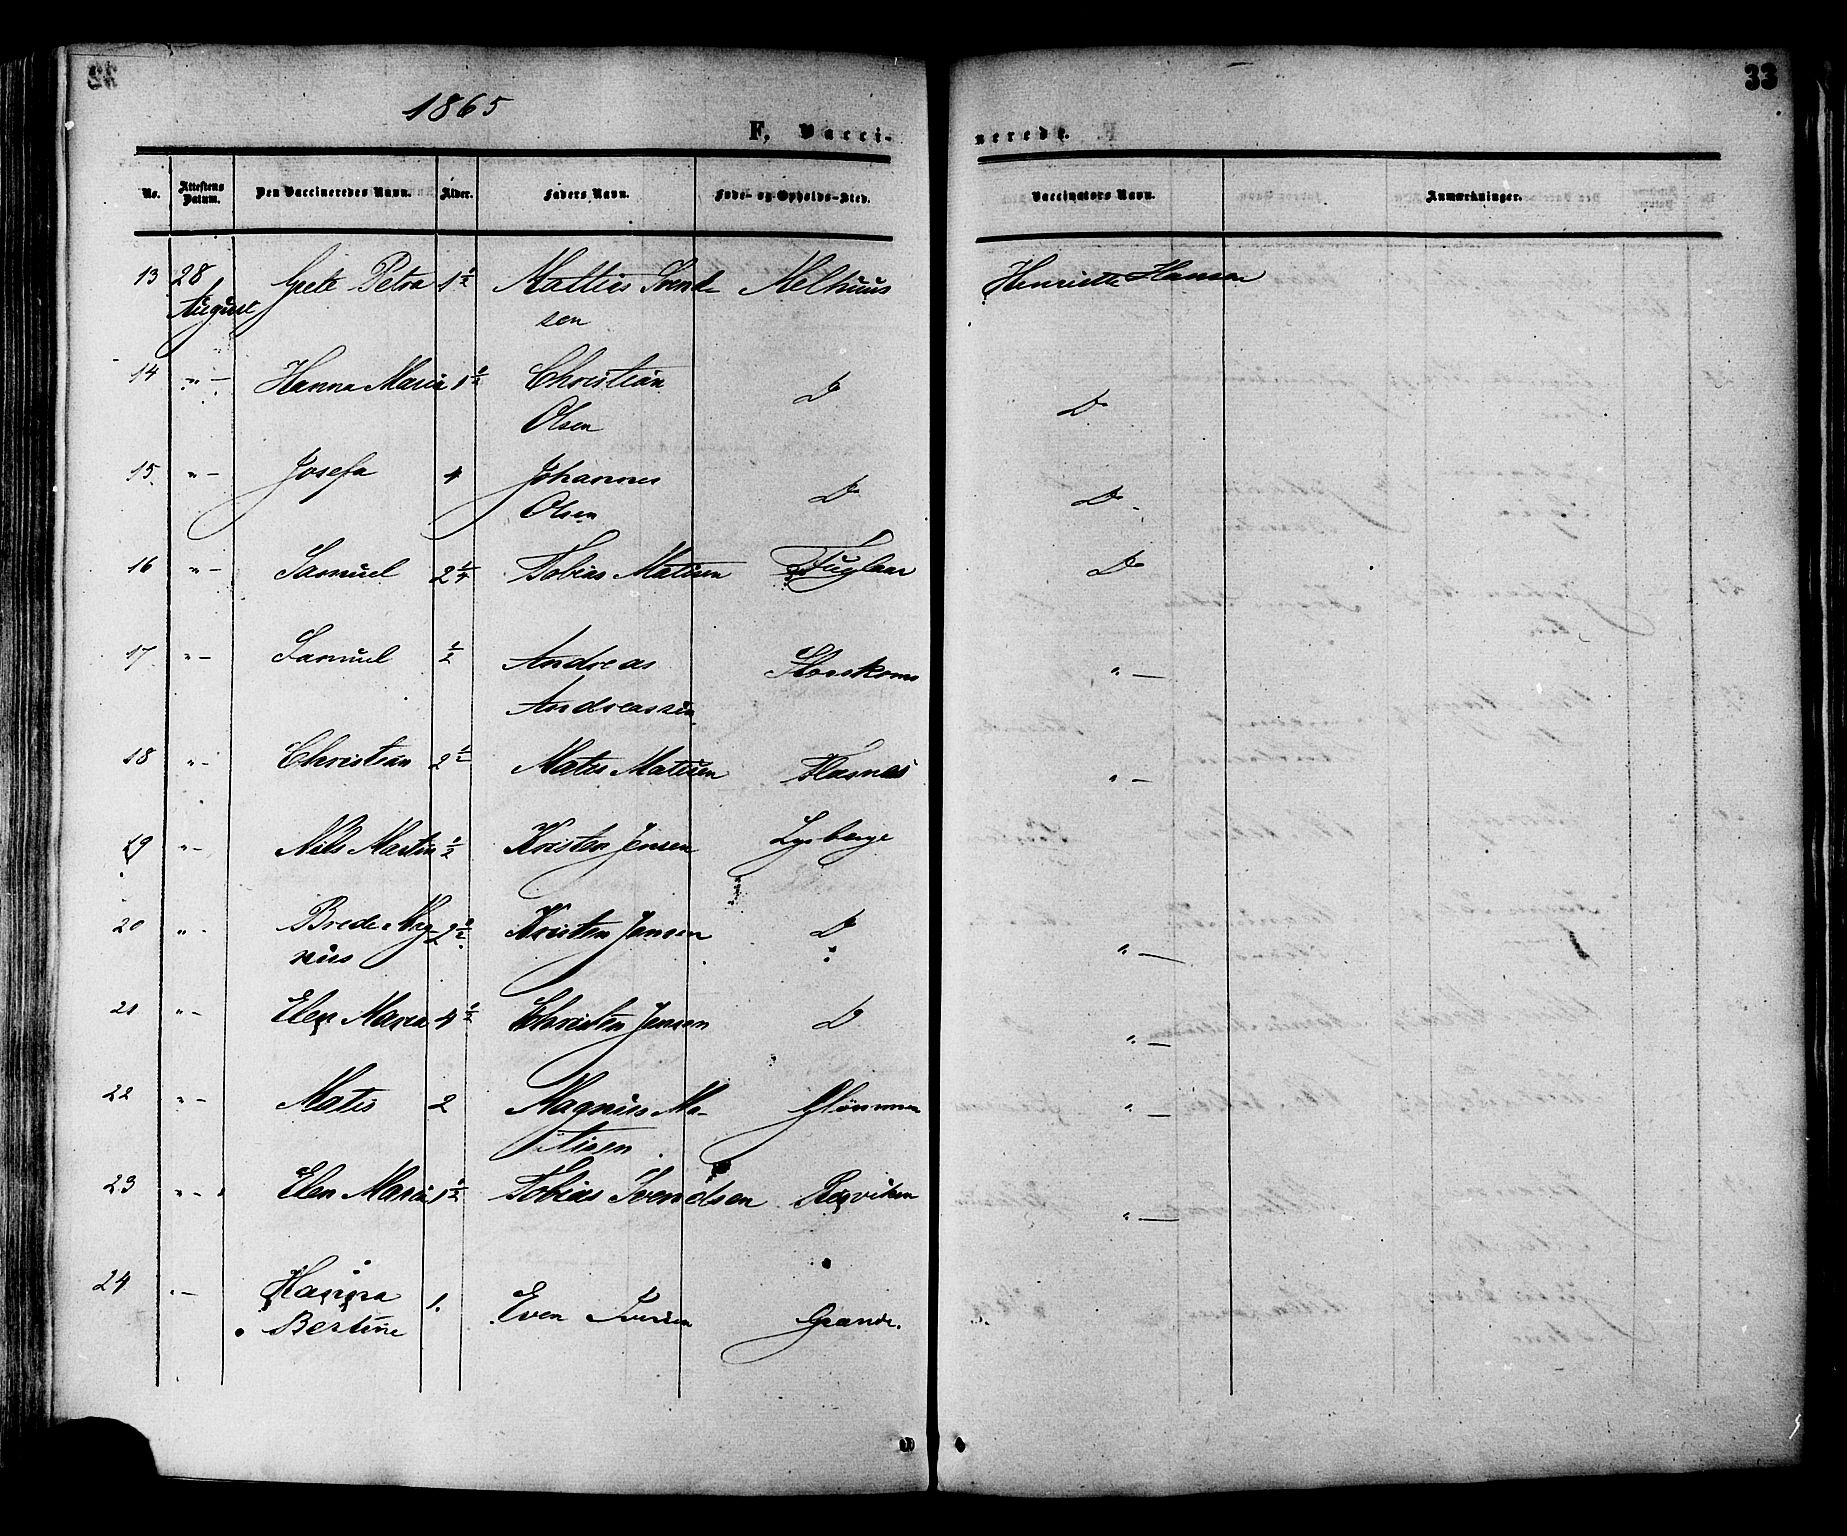 33
1865
F. Vaccinerede.
No. Attestens Datum. Den Vaccineredes Navn. Alder. Faders Navn. Føde- og Opholds-Sted. Vaccinators Navn. Anmærkninger.
13 28 August Grete Petra 1 1/2 Mattis Svend Melhuus Henriette Hansen
sen
14 " — Hanna Maria 1 1/2 Christian Do Do
Olsen
15 " — Josefa 4 Johannes Do Do
Olsen
16 " — Samuel 2 1/4 Tobias Matisen Fuglaas Do
17 " — Samuel 1/2 Andreas " —
Andreassen
18 " — Christian 2 1/2 Matis Matisen Flasnes " —
19 " — Nils Martin 1/2 Kristen Jensen Lysberge
20 " - Brede Mag 2 1/2 Kristen Jensen Do " —
nus
21 " — Elen Maria 4 1/2 Christen Jensen Do " —
22 " — Matis 2 Magnus Ma- Glømmen " —
tisen
23 " — Elen Maria 1 1/2 Tobias Svendsen " —
24 " — Hanna 1. Even Iversen Grande.
Bertine